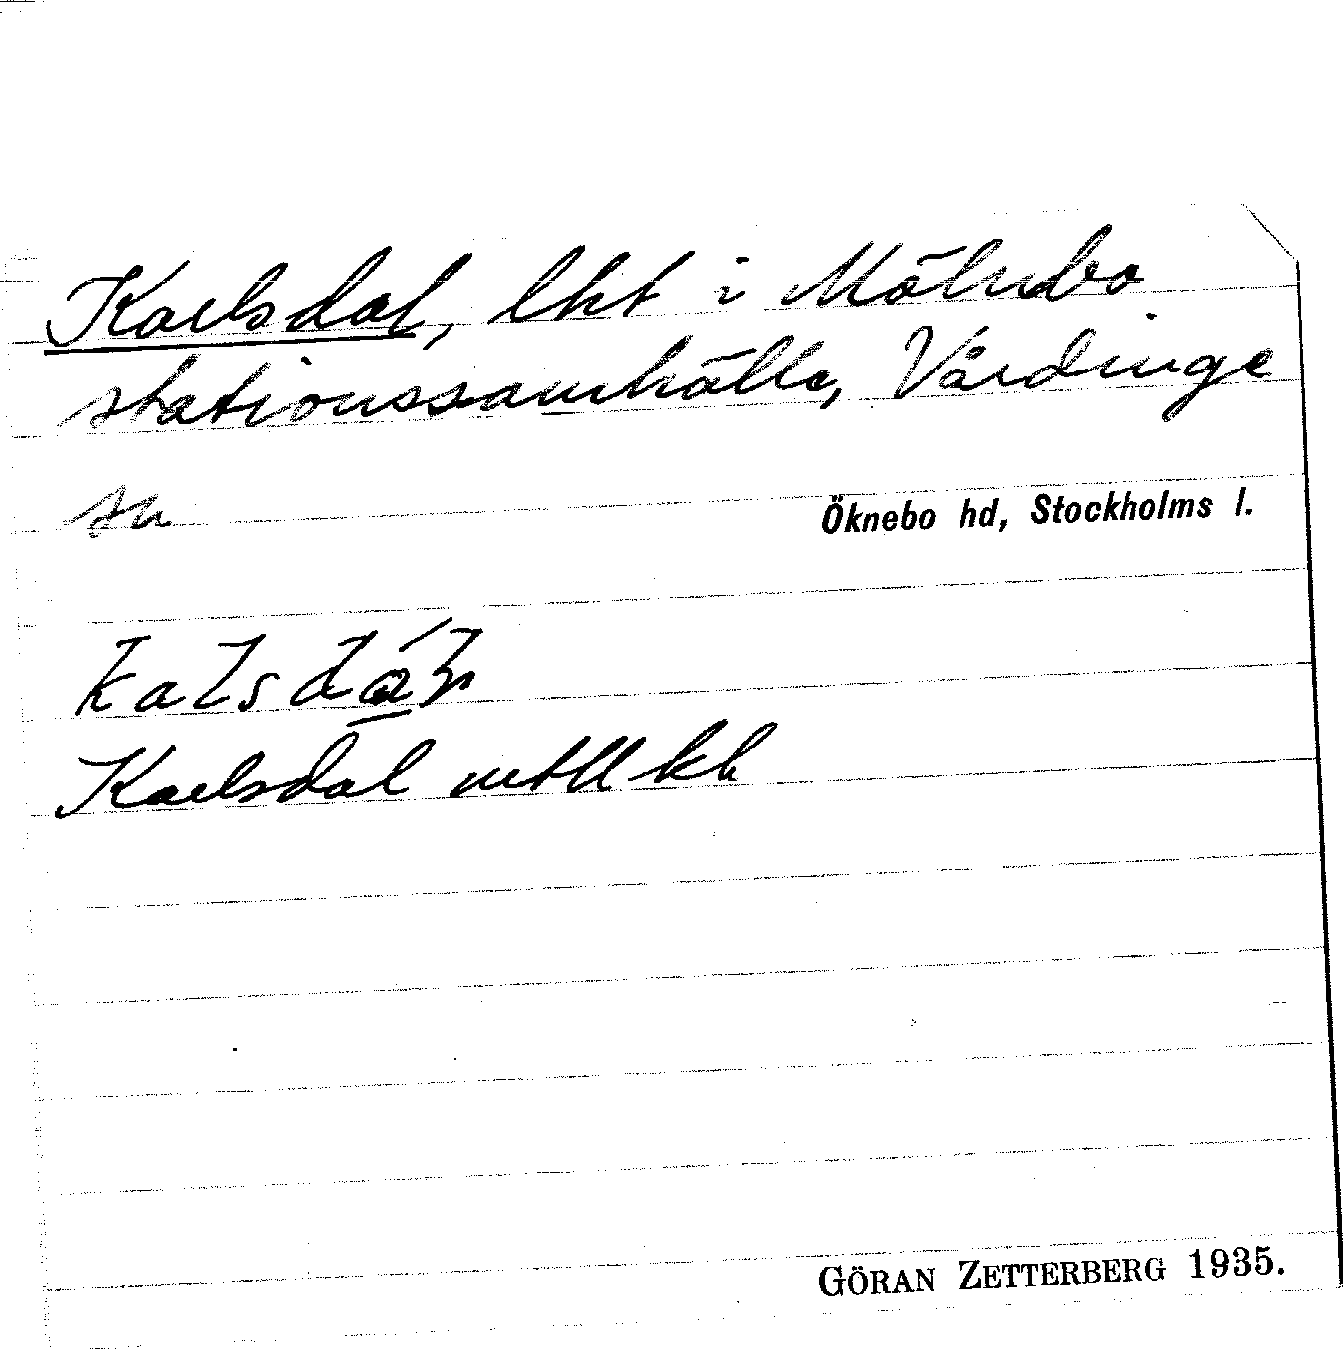 Karlsdal, lht i Mölnbo
stationssamhälle, Vårdinge
sn
Öknebo hd, Stockholms l.
Karlsdal mtll kh
GÖRAN ZETTERBERG 1935.